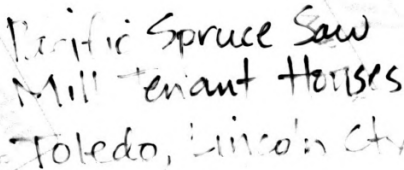 Pacific Spruce Saw
Mill Tenant Houses
Toledo, Lincoln Cty